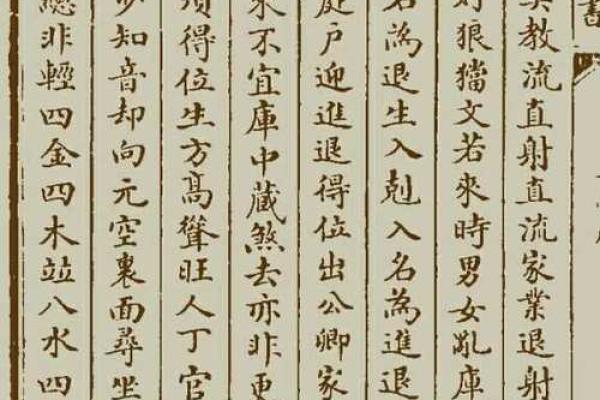 書
教流直射直流家業退射
狼獷文若來時男女亂庫
名為退生入剋入名為進退
戶迎進退得位出公卿家
來不宜庫中藏煞去亦非更
須得位生方高聳旺人丁官
知音却向元空裏面尋坐
總非輕四金四木竝八水四